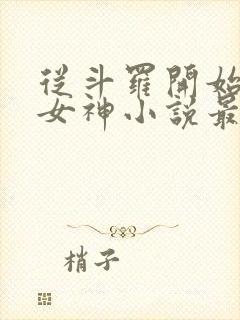 從斗羅開始
女神小說最
梢子